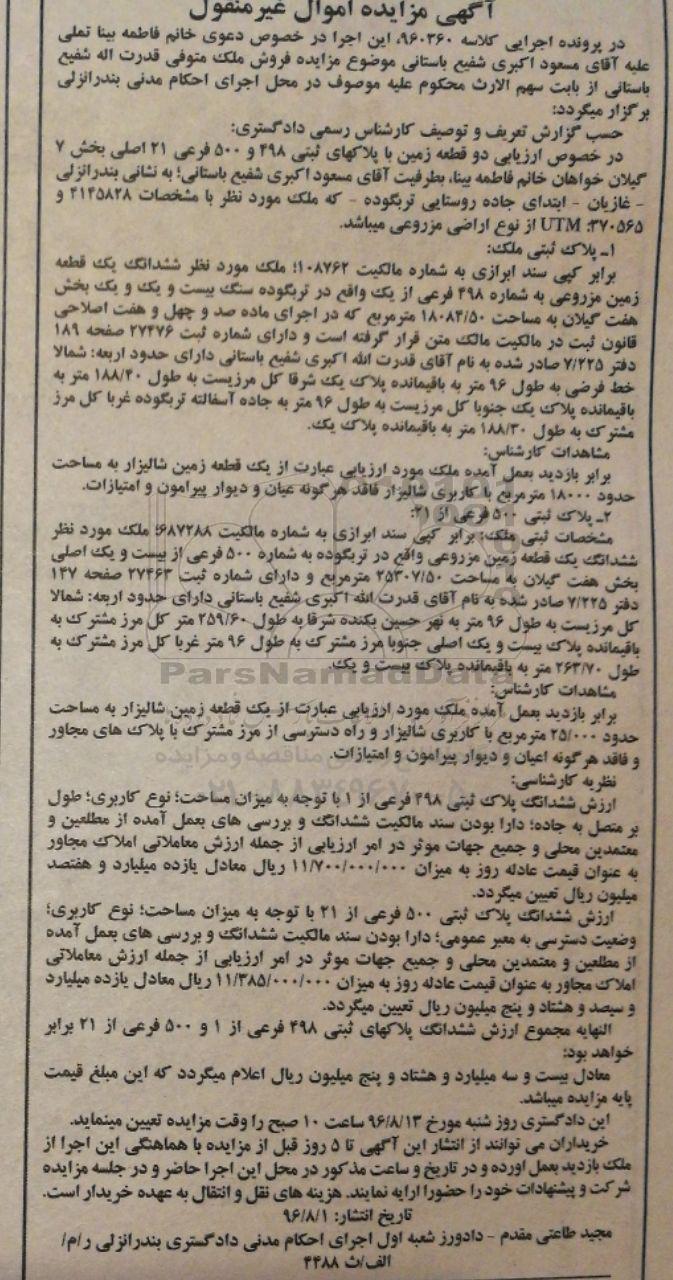 آگهی مزایده اموال غیرمنقول
در پرونده اجرایی کلاسه ۹۶۰۳۶۰، این اجرا در خصوص دعوی خانم فاطمه بینا تملی
علیه آقای مسعود اکبری شفیع باستانی موضوع مزایده فروش ملک متوفی قدرت اله شفیع
باستانی از بابت سهم الارث محکوم علیه موصوف در محل اجرای احکام مدنی بندرانزلی
برگزار میگردد:
حسب گزارش تعریف و توصیف کارشناس رسمی دادگستری:
در خصوص ارزیابی دو قطعه زمین با پلاکهای ثبتی ۴۹۸ و ۵۰۰ فرعی ۲۱ اصلی بخش ۷
گیلان خواهان خانم فاطمه بینا، بطرفیت آقای مسعود اکبری شفیع باستانی؛ به نشانی بندرانزلی
- غازیان - ابتدای جاده روستایی تربگوده - که ملک مورد نظر با مشخصات ۴۱۴۵۸۲۸ و
۳۷۰۵۶۵: UTM از نوع اراضی مزروعی میباشد.
۱ـ پلاک ثبتی ملک:
برابر کپی سند ابرازی به شماره مالکیت ۱۰۸۷۶۲؛ ملک مورد نظر ششدانگ یک قطعه
زمین مزروعی به شماره ۴۹۸ فرعی از یک واقع در تربگوده سنگ بیست و یک و یک بخش
هفت گیلان به مساحت ۱۸۰۸۴/۵۰ مترمربع که در اجرای ماده صد و چهل و هفت اصلاحی
قانون ثبت در مالکیت مالک متن قرار گرفته است و دارای شماره ثبت ۲۷۴۷۶ صفحه ۱۸۹
دفتر ۷/۲۲۵ صادر شده به نام آقای قدرت الله اکبری شفیع باستانی دارای حدود اربعه: شمالا
خط فرضی به طول ۹۶ متر به باقیمانده پلاک یک شرقا کل مرزیست به طول ۱۸۸/۴۰ متر به
باقیمانده پلاک یک جنوبا کل مرزیست به طول ۹۶ متر به جاده آسفالته تربگوده غربا کل مرز
مشترک به طول ۱۸۸/۳۰ متر به باقیمانده پلاک یک.
مشاهدات کارشناس:
برابر بازدید بعمل آمده ملک مورد ارزیابی عبارت از یک قطعه زمین شالیزار به مساحت
حدود ۱۸۰۰۰ مترمربع با کاربری شالیزار فاقد هرگونه عیان و دیوار پیرامون و امتیازات.
۲ـ پلاک ثبتی ۵۰۰ فرعی از ۲۱:
مشخصات ثبتی ملک: برابر کپی سند ابرازی به شماره مالکیت ۶۸۷۲۸۸؛ ملک مورد نظر
ششدانگ یک قطعه زمین مزروعی واقع در تربگوده به شماره ۵۰۰ فرعی از بیست و یک اصلی
بخش هفت گیلان به مساحت ۲۵۳۰۷/۵۰ مترمربع و دارای شماره ثبت ۲۷۴۶۳ صفحه ۱۴۷
دفتر ۷/۲۲۵ صادر شده به نام آقای قدرت الله اکبری شفیع باستانی دارای حدود اربعه: شمالا
کل مرزیست به طول ۹۶ متر به نهر حسین بکنده شرقا به طول ۲۵۹/۶۰ متر کل مرز مشترک به
باقیمانده پلاک بیست و یک اصلی جنوبا مرز مشترک به طول ۹۶ متر غربا کل مرز مشترک به
طول ۲۶۳/۷۰ متر به باقیمانده پلاک بیست و یک.
ParsNamadData
مشاهدات کارشناس:
برابر بازدید بعمل آمده ملک مورد ارزیابی عبارت از یک قطعه زمین شالیزار به مساحت
حدود ۲۵/۰۰۰ مترمربع با کاربری شالیزار و راه دسترسی از مرز مشترک با پلاک های مجاور
و فاقد هرگونه اعیان و دیوار پیرامون و امتیازات.
نظریه کارشناسی:
ارزش ششدانگ پلاک ثبتی ۴۹۸ فرعی از ۱ با توجه به میزان مساحت؛ نوع کاربری؛ طول
بر متصل به جاده؛ دارا بودن سند مالکیت ششدانگ و بررسی های بعمل آمده از مطلعین و
معتمدین محلی و جمیع جهات موثر در امر ارزیابی از جمله ارزش معاملاتی املاک مجاور
به عنوان قیمت عادله روز به میزان ۱۱/۷۰۰/۰۰۰/۰۰۰ ریال معادل یازده میلیارد و هفتصد
میلیون ریال تعیین میگردد.
ارزش ششدانگ پلاک ثبتی ۵۰۰ فرعی از ۲۱ با توجه به میزان مساحت؛ نوع کاربری؛
وضعیت دسترسی به معبر عمومی؛ دارا بودن سند مالکیت ششدانگ و بررسی های بعمل آمده
از مطلعین و معتمدین محلی و جمیع جهات موثر در امر ارزیابی از جمله ارزش معاملاتی
املاک مجاور به عنوان قیمت عادله روز به میزان ۱۱/۳۸۵/۰۰۰/۰۰۰ ریال معادل یازده میلیارد
و سیصد و هشتاد و پنج میلیون ریال تعیین میگردد.
النهایه مجموع ارزش ششدانگ پلاکهای ثبتی ۴۹۸ فرعی از ۱ و ۵۰۰ فرعی از ۲۱ برابر
خواهد بود:
معادل بیست و سه میلیارد و هشتاد و پنج میلیون ریال اعلام میگردد که این مبلغ قیمت
پایه مزایده میباشد.
این دادگستری روز شنبه مورخ ۹۶/۸/۱۳ ساعت ۱۰ صبح را وقت مزایده تعیین مینماید.
خریداران می توانند از انتشار این آگهی تا ۵ روز قبل از مزایده با هماهنگی این اجرا از
ملک بازدید بعمل اورده و در تاریخ و ساعت مذکور در محل این اجرا حاضر و در جلسه مزایده
شرکت و پیشنهادات خود را حضورا ارایه نمایند. هزینه های نقل و انتقال به عهده خریدار است.
تاریخ انتشار: ۹۶/۸/۱
مجید طاعتی مقدم - دادورز شعبه اول اجرای احکام مدنی دادگستری بندرانزلی ر/م/
الف/ث ۴۴۸۸